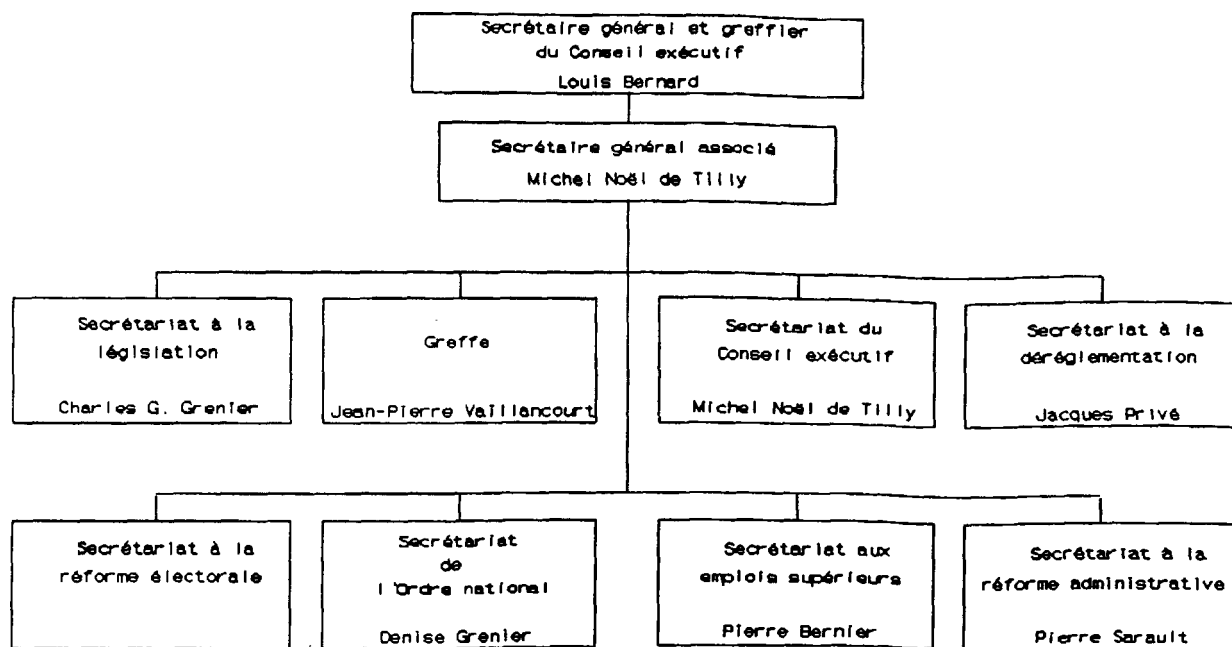 Secrétaire général et greffier
du Conseil exécutif
Louis Bernard
Secrétaire général associé
Michel Noël de Tilly
Secrétariat à la
législation
Charles G. Grenier
Greffe
Jean-Pierre Vaillancourt
Secrétariat du
Conseil exécutif
Michel Noël de Tilly
Secrétariat à la
déréglementation
Jacques Privé
Secrétariat à la
réforme électorale
Secrétariat
de
l'Ordre national
Denise Grenier
Secrétariat aux
emplois supérieurs
Pierre Bernier
Secrétariat à la
réforme administrative
Pierre Sarault